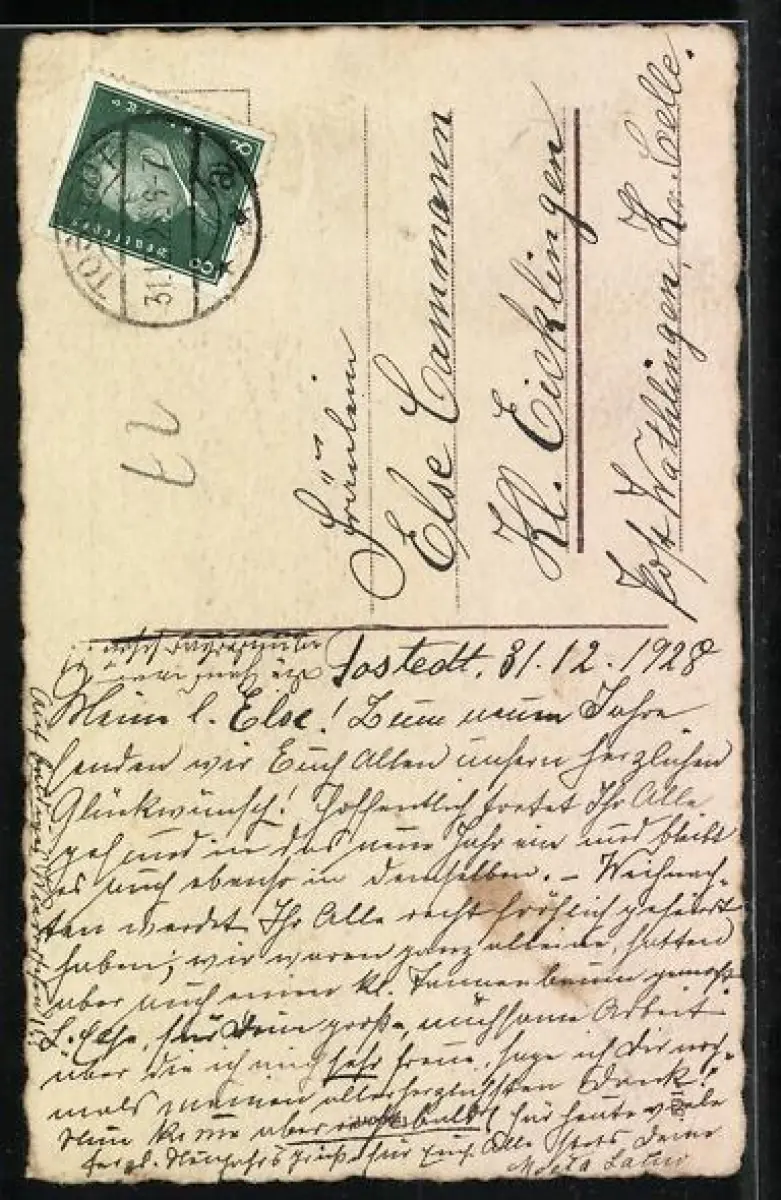 TOSTEDT
31.12.28 6-7
8
8
Deutsches
Fräulein
Else Cammann
Kl. Eicklingen
Post Wathlingen, Kr. Celle.
Tostedt, 31.12.1928
Meine l. Else! Zum neuen Jahre
senden wir Euch Allen unsern herzlichen
Glückwunsch! Hoffentlich tretet Ihr Alle
gesund in das neue Jahr ein und bleibt
es auch ebenso in demselben. – Weihnach-
ten werdet Ihr Alle recht fröhlich gefeiert
haben; wir waren ganz alleine, hatten
aber auch einen kl. Tannenbaum gemacht
L. Else, für Deine große, mühsame Arbeit
über die ich mich sehr freue, sage ich Dir noch-
mals meinen allerherzlichsten Dank!
Nun komme aber bald! Für heute viele
herzl. Neujahrsgrüße für Euch Alle stets Deine
Meta